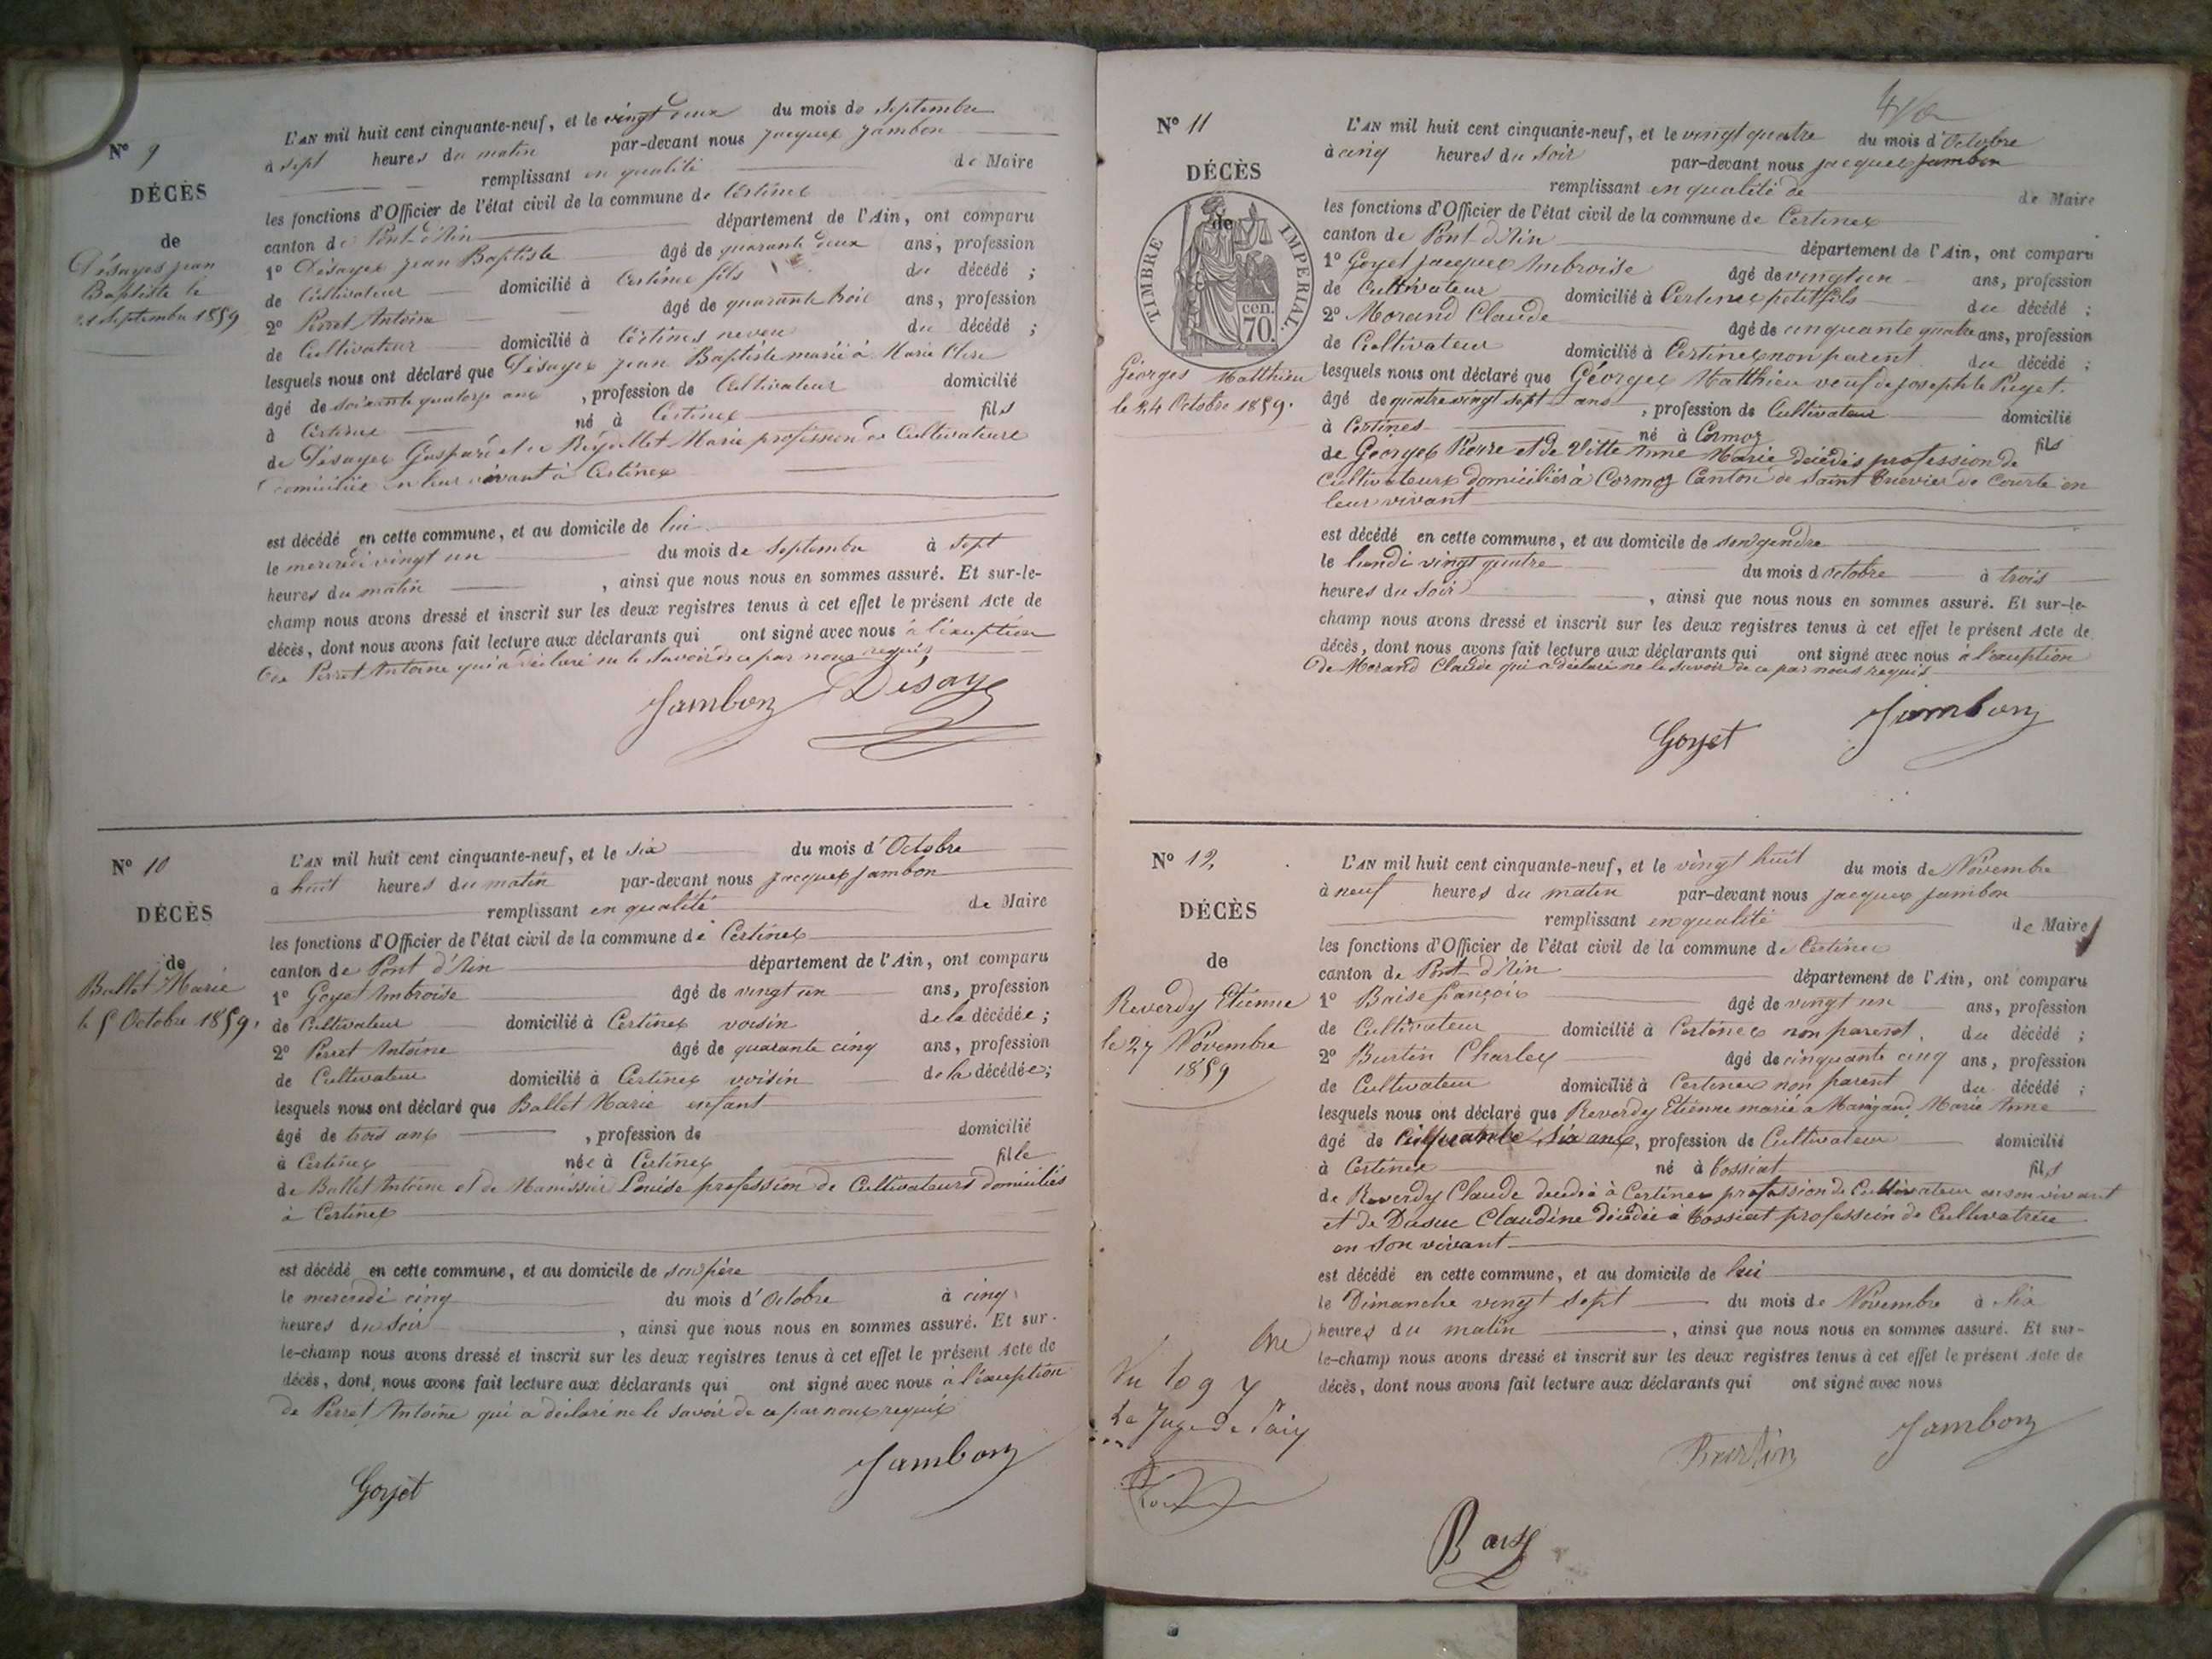 N° 9
DÉCÈS
de
Désayes jean
Baptiste le
21 Septembre 1859
L'AN mil huit cent cinquante-neuf, et le vingt deux du mois de Septembre
à sept heures du matin par-devant nous jacques jambon
remplissant en qualité de Maire
les fonctions d'Officier de l'état civil de la commune de Certines
canton de Pont-d'Ain département de l'Ain, ont comparu
1° Désayes jean Baptiste âgé de quarante deux ans, profession
de Cultivateur domicilié à Certines fils du décédé ;
2° Perret Antoine âgé de quarante trois ans, profession
de Cultivateur domicilié à Certines neveu du décédé ;
lesquels nous ont déclaré que Désayes jean Baptiste marié à Marie Clere
âgé de soixante quatorze ans , profession de Cultivateur domicilié
à Certines né à Certines fils
de Désayes Gaspard et de Marie profession de Cultivateurs
domiciliés en leur vivant à Certines
est décédé en cette commune, et au domicile de lui
le mercredi vingt un du mois de Septembre à sept
heures du matin , ainsi que nous nous en sommes assuré. Et sur-le-
champ nous avons dressé et inscrit sur les deux registres tenus à cet effet le présent Acte de
décès, dont nous avons fait lecture aux déclarants qui ont signé avec nous à l'exception
de Perret Antoine qui a déclaré ne le savoir de ce par nous requis
Jambon Désayes
N° 10
DÉCÈS
de
Ballet Marie
le 5 Octobre 1859.
L'AN mil huit cent cinquante-neuf, et le six du mois d'Octobre
à huit heures du matin par-devant nous jacques jambon
remplissant en qualité de Maire
les fonctions d'Officier de l'état civil de la commune de Certines
canton de Pont d'Ain département de l'Ain, ont comparu
1° Goyet Ambroise âgé de vingt un ans, profession
de Cultivateur domicilié à Certines voisin de la décédée ;
2° Perret Antoine âgé de quarante cinq ans, profession
de Cultivateur domicilié à Certines voisin de la décédée ;
lesquels nous ont déclaré que Ballet Marie enfant
âgé de trois ans , profession de domicilié
à Certines née à Certines fille
de Ballet Antoine et de Louise profession de Cultivateurs domiciliés
à Certines
est décédé en cette commune, et au domicile de son père
le mercredi cinq du mois d'Octobre à cinq
heures du soir , ainsi que nous nous en sommes assuré. Et sur-
le-champ nous avons dressé et inscrit sur les deux registres tenus à cet effet le présent Acte de
décès, dont nous avons fait lecture aux déclarants qui ont signé avec nous à l'exception
de Perret Antoine qui a déclaré ne le savoir de ce par nous requis
Goyet Jambon
N° 11
DÉCÈS
de
TIMBRE IMPERIAL.
cen.
70.
Georges Matthieu
le 24 Octobre 1859.
L'AN mil huit cent cinquante-neuf, et le vingt quatre du mois d'Octobre
à cinq heures du soir par-devant nous jacques jambon
remplissant en qualité de de Maire
les fonctions d'Officier de l'état civil de la commune de Certines
canton de Pont-d'Ain département de l'Ain, ont comparu
1° Goyet jacques Ambroise âgé de vingt un ans, profession
de Cultivateur domicilié à Certines petit fils du décédé ;
2° Morand Claude âgé de cinquante quatre ans, profession
de Cultivateur domicilié à Certines non parent du décédé ;
lesquels nous ont déclaré que Georges Matthieu veuf de josephte Puget.
âgé de quatre vingt sept ans , profession de Cultivateur domicilié
à Certines né à Cormoz fils
de Georges Pierre et de Vitte Anne Marie décédés profession de
Cultivateurs domiciliés à Cormoz Canton de Saint de Courte en
leur vivant
est décédé en cette commune, et au domicile de son gendre
le lundi vingt quatre du mois d'octobre à trois
heures du soir , ainsi que nous nous en sommes assuré. Et sur-le-
champ nous avons dressé et inscrit sur les deux registres tenus à cet effet le présent Acte de
décès, dont nous avons fait lecture aux déclarants qui ont signé avec nous à l'exception
de Morand Claude qui a déclaré ne le savoir de ce par nous requis
Goyet Jambon
N° 12
DÉCÈS
de
Reverdy Etienne
le 27 Novembre
1859
L'AN mil huit cent cinquante-neuf, et le vingt huit du mois de Novembre
à neuf heures du matin par-devant nous jacques jambon
remplissant en qualité de Maire
les fonctions d'Officier de l'état civil de la commune de Certines
canton de Pont-d'Ain département de l'Ain, ont comparu
1° Baise françois âgé de vingt un ans, profession
de Cultivateur domicilié à Certines non parent. du décédé ;
2° Burtin Charles âgé de cinquante cinq ans, profession
de Cultivateur domicilié à Certines non parent du décédé ;
lesquels nous ont déclaré que Reverdy Etienne marié a Marie Anne
âgé de six ans, profession de Cultivateur domicilié
à Certines né à Tossiat fils
de Reverdy Claude décédé à Certines profession de Cultivateur en son vivant
et de Dasuc Claudine décédée à Tossiat profession de Cultivatrice
en son vivant
est décédé en cette commune, et au domicile de lui
le Dimanche vingt sept du mois de Novembre à six
heures du matin , ainsi que nous nous en sommes assuré. Et sur-
le-champ nous avons dressé et inscrit sur les deux registres tenus à cet effet le présent Acte de
décès, dont nous avons fait lecture aux déclarants qui ont signé avec nous
Vu
Le Juge de Paix
Burtin Jambon
Baise